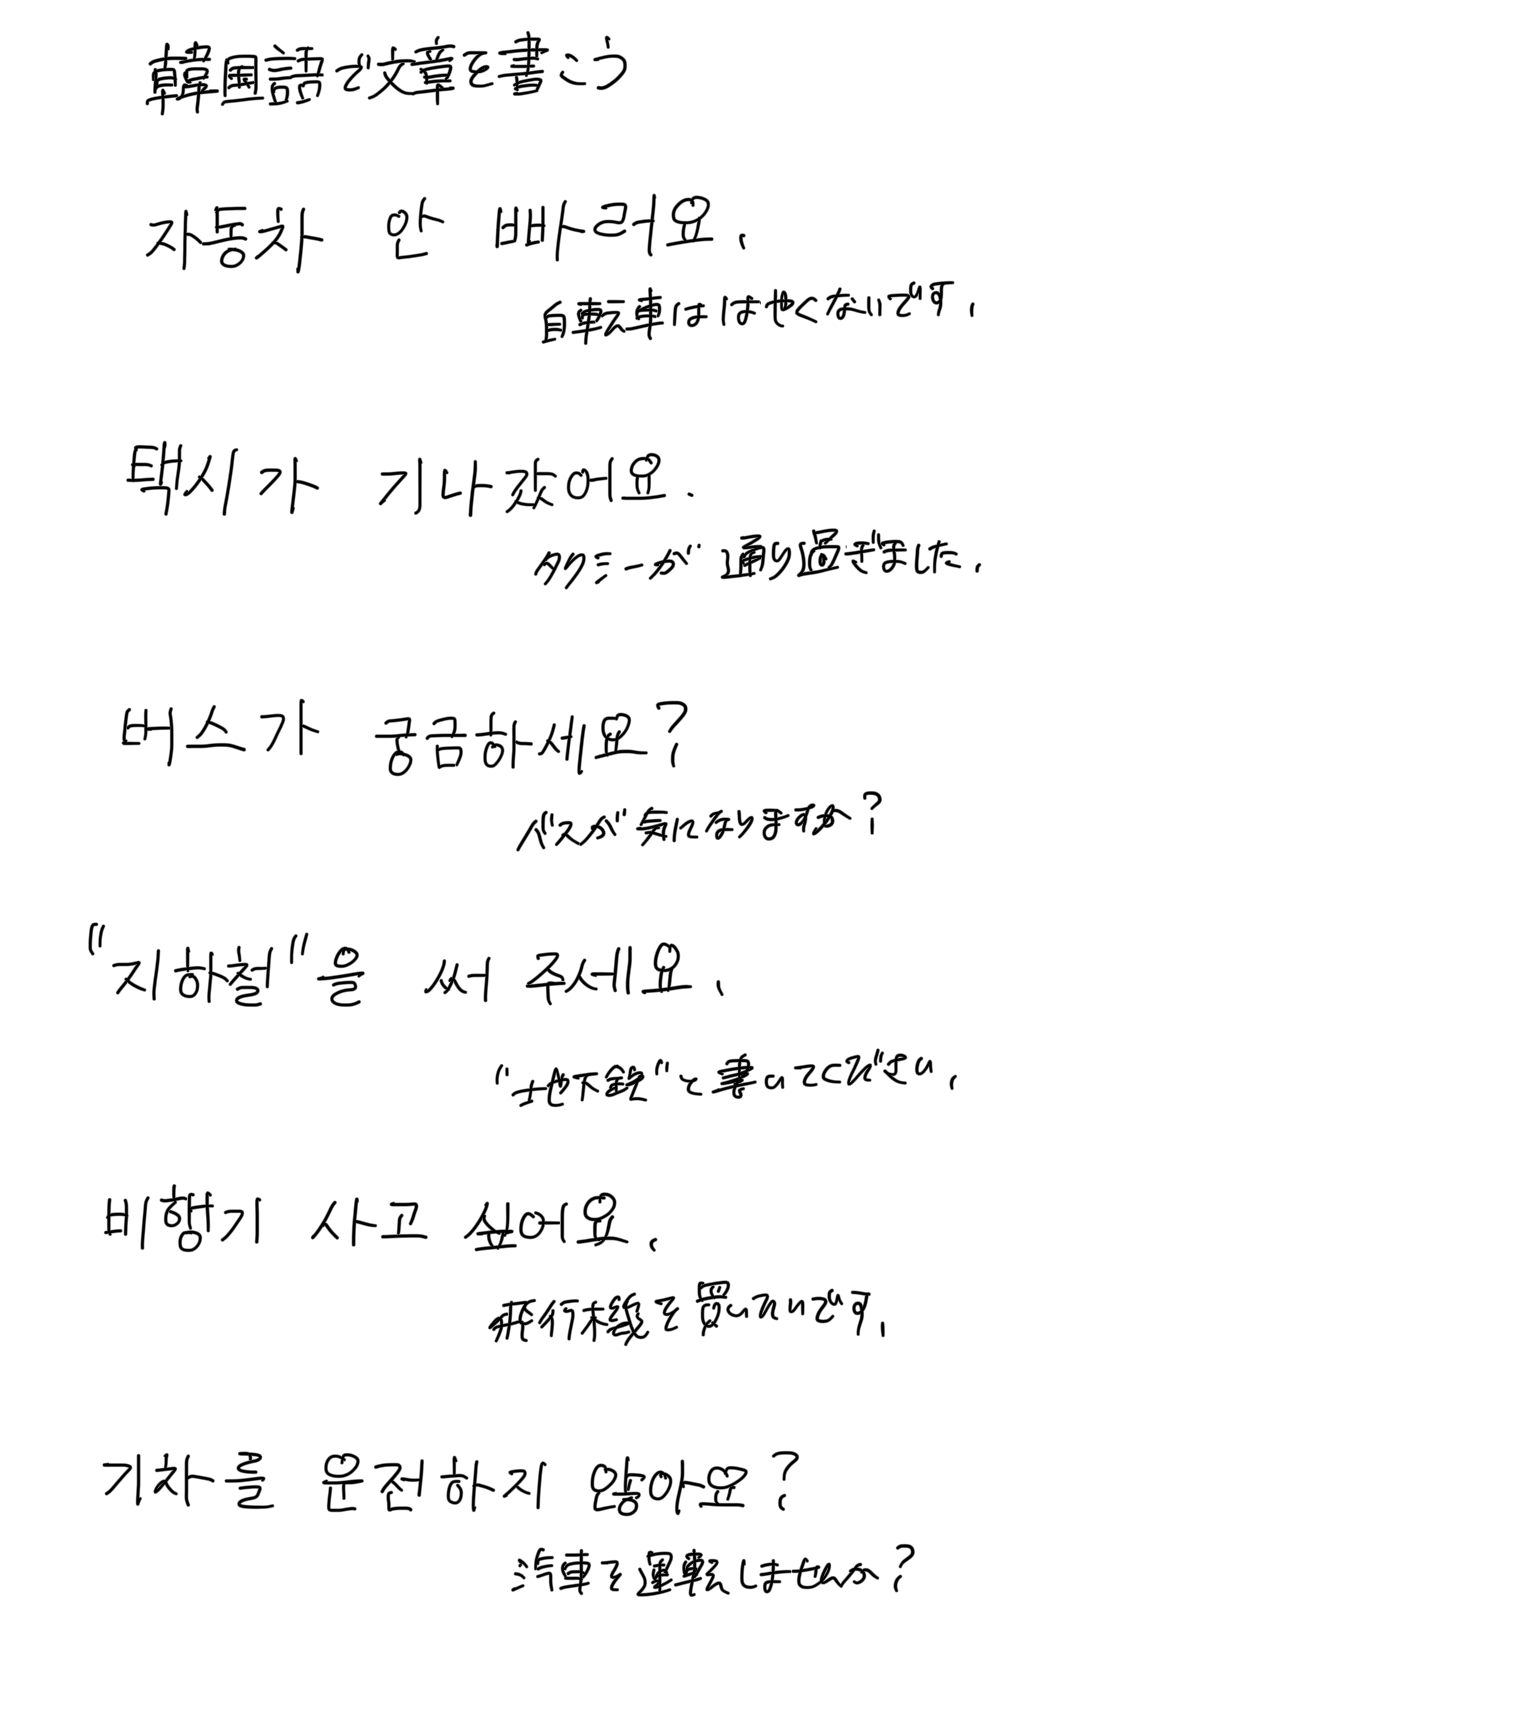 韓国語で文章を書こう
자동차 안 빠러요.
自転車ははやくないです.
택시가 기나갔어요.
タクシーが通り過ぎました.
버스가 궁금하세요?
バスが気になりますか?
"지하철"을 써 주세요.
"地下鉄"と書いてください.
비행기 사고 싶어요.
飛行機を買いたいです.
기차를 운전하지 않아요?
汽車を運転しませんか?